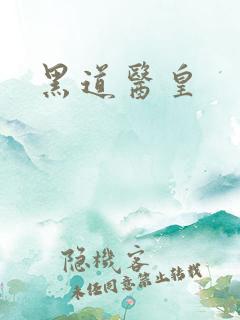 黑道醫皇
隐機客
未任同意禁止转载